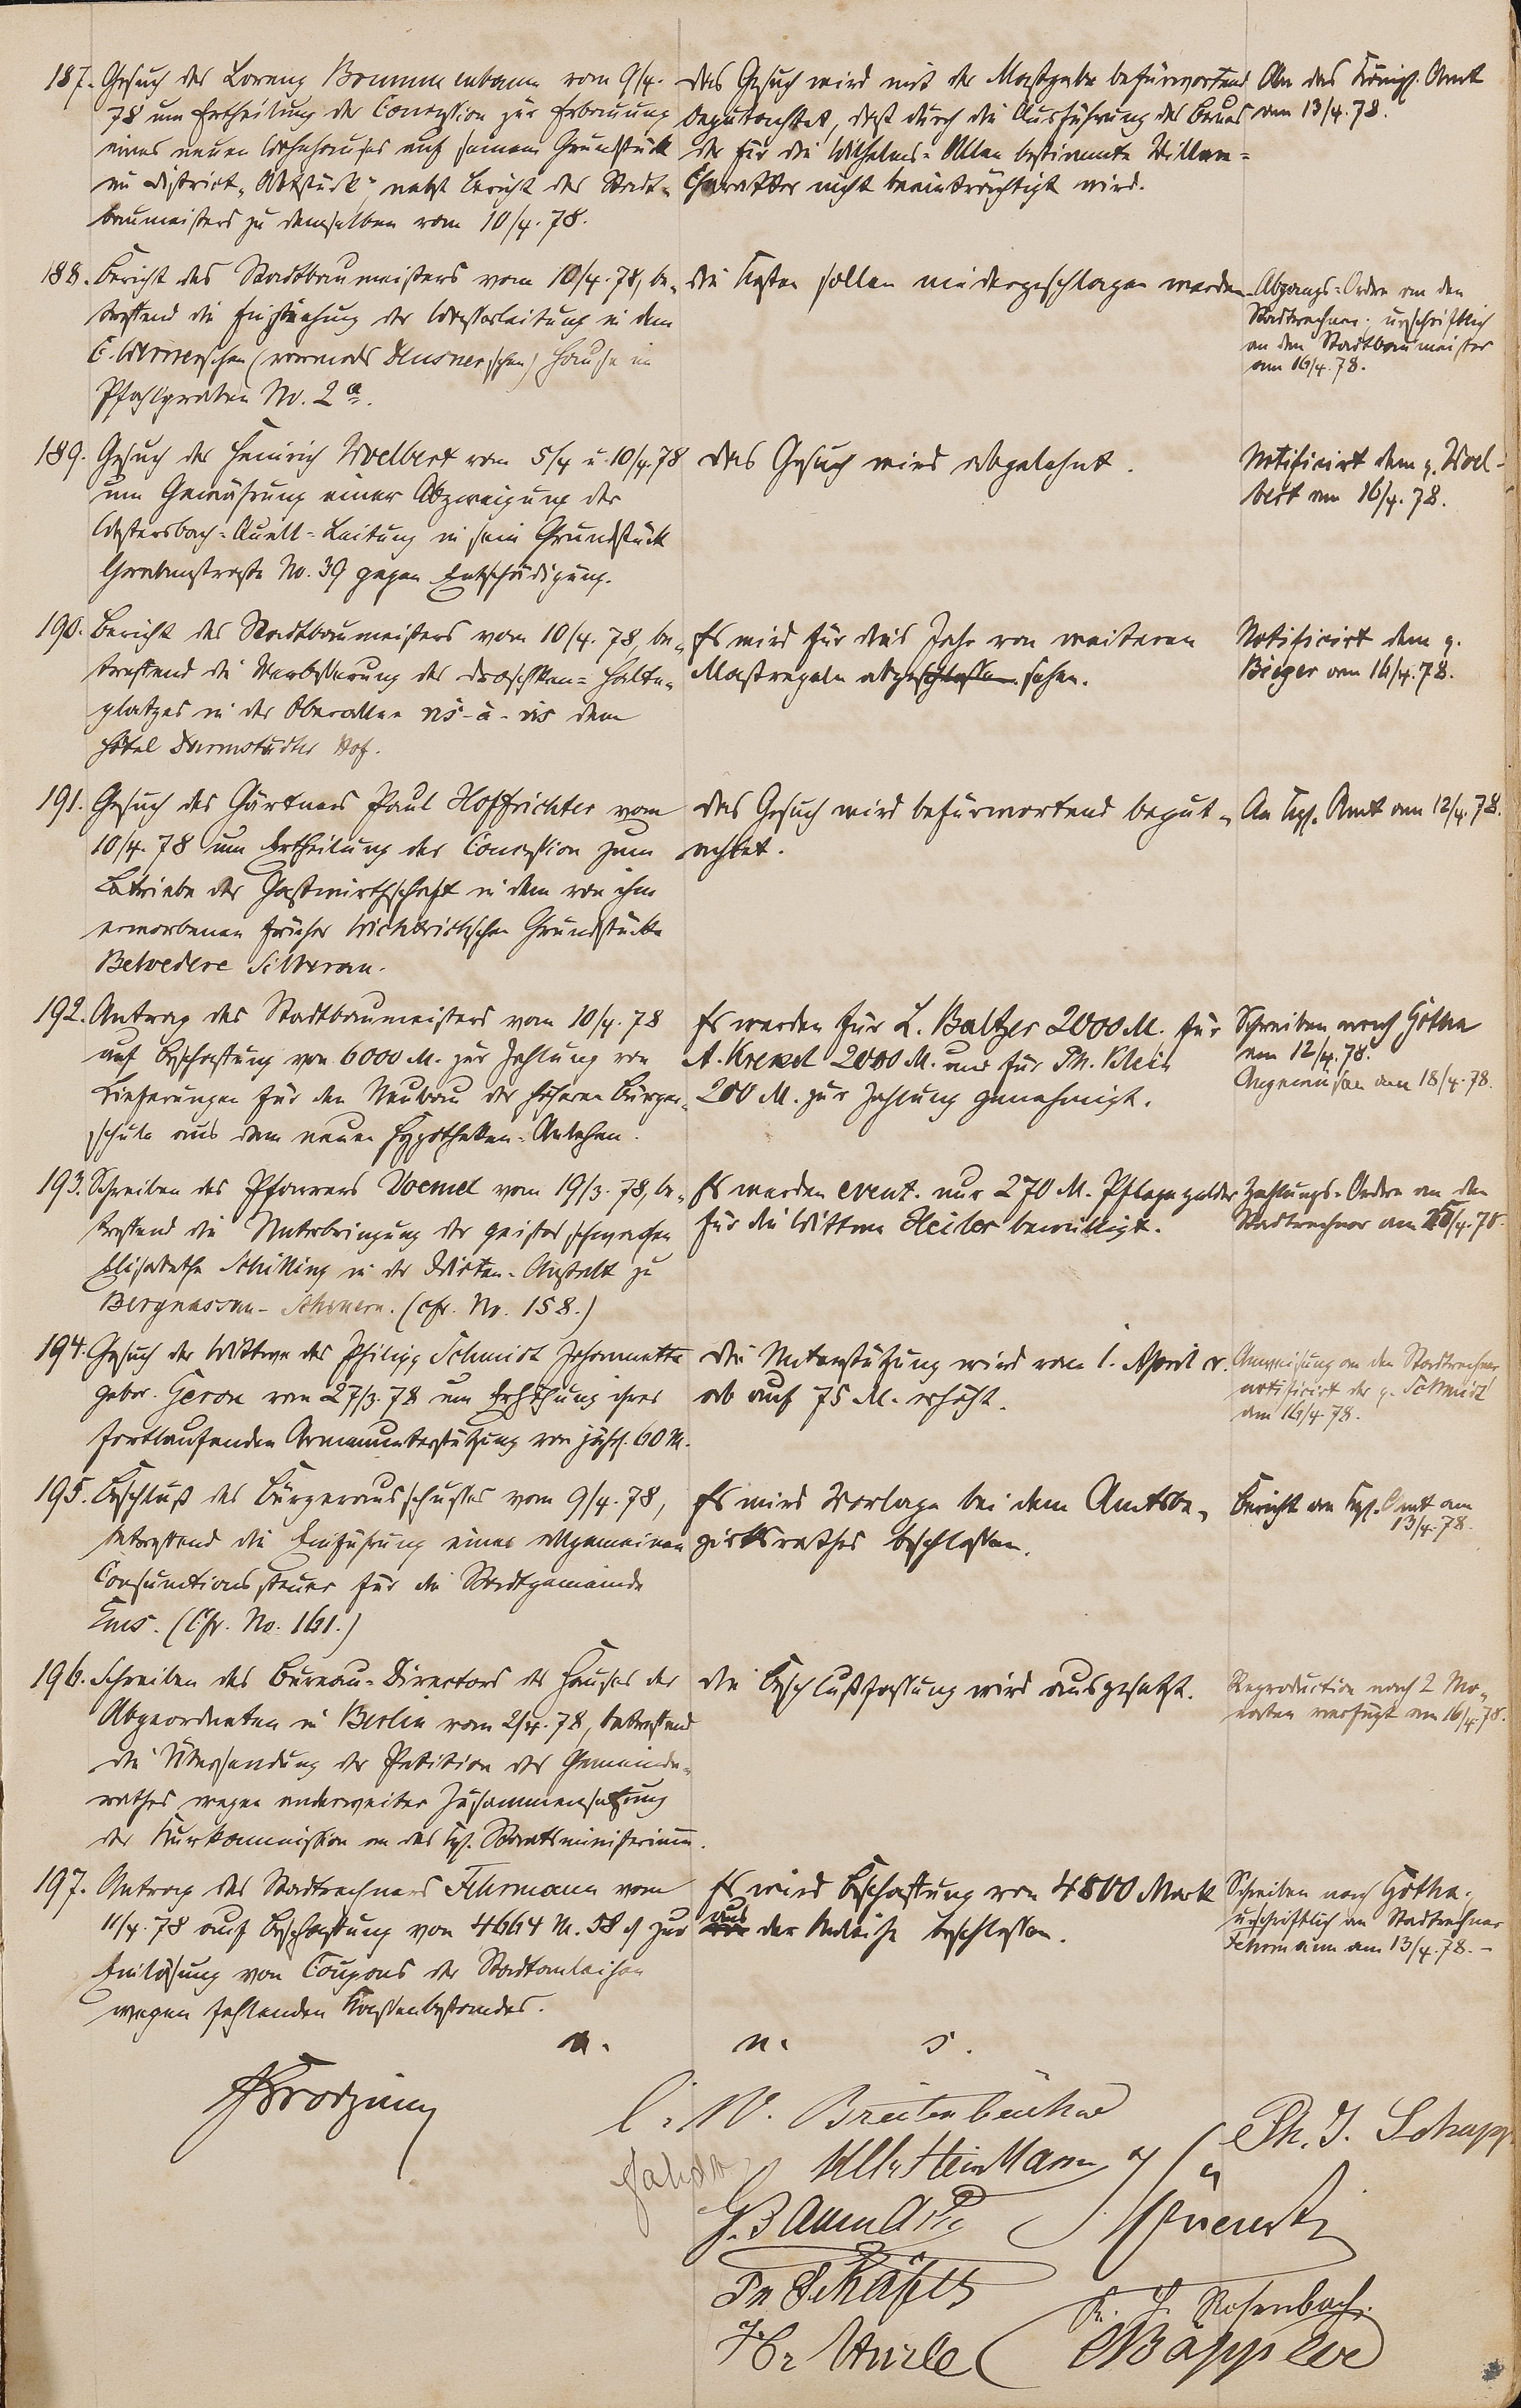 187. Gesuch des Lorenz Brummenbaum vom 9/4.
78 um Ertheilung der Concession zur Erbauung
eines neuen Wohnhauses auf seinem Grundstück
im District "Abtstück", nebst Bericht des Stadt-
baumeisters zu demselben vom 10/4. 78.
Das Gesuch wird mit der Maßgabe befürwortend
begutachtet, daß durch die Ausführung des Baues
der für die Wilhelms-Allee bestimmte Villen-
Charakter nicht beeinträchtigt wird.
An das Königl. Amt
am 13/4. 78.
188. Bericht des Stadtbaumeisters vom 10/4. 78, be-
treffend die Einziehung der Wasserleitung in dem
(vormals Heusner'schen) Hause im
Pfahlgraben No. 2a.
Die Kosten sollen niedergeschlagen werden.
Abgangs-Ordre an den
Stadtrechner; urschriftlich
an den Stadtbaumeister
am 16/4. 78.
189. Gesuch des Heinrich Woelbert vom 5/4 u. 10/4 78
um Gewährung einer Abzweigung der
Westersbach-Quell-Leitung in sein Grundstück
Grabenstraße No. 39 gegen Entschädigung.
Das Gesuch wird abgelehnt.
Notificirt dem p. Woel-
bert am 16/4. 78.
190. Bericht des Stadtbaumeisters vom 10/4. 78, be-
treffend die Verbesserung des Droschken-Halte-
platzes in der Oberallee vis-à-vis dem
Hôtel Darmstädter Hof.
Es wird für dies Jahr von weiteren
Maßregeln abgeschlossen sehen.
Notificirt dem p.
Bieger am 16/4. 78.
191. Gesuch des Gärtners Paul Hoffrichter vom
10/4. 78 um Ertheilung der Concession zum
Betriebe der Gastwirthschaft in dem von ihm
erworbenen früher Wichtrich'schen Grundstücke
Belvedere Silberau.
Das Gesuch wird befürwortend begut-
achtet.
An Kgl. Amt am 12/4. 78.
192. Antrag des Stadtbaumeisters vom 10/4. 78
auf Beschaffung von 6000 M. zur Zahlung von
Lieferungen für den Neubau der höheren Bürger-
schule aus dem neuen Hypotheken-Anlehen.
Es werden für L. Baltzer 2000 M. für
A. Krekel 2000 M. und für Ph. Klein
200 M. zur Zahlung genehmigt.
Schreiben nach Gotha
am 12/4. 78.
Angewiesen am 18/4. 78.
193. Schreiben des Pfarrers Voemel vom 19/3. 78, be-
treffend die Unterbringung der geistesschwachen
Elisabethe Schilling in der Idioten-Anstalt zu
Bergnassau-Scheuern. (cfr. No. 158.)
Es werden event. nur 270 M. Pflegegelder
für die Wittwe Heiler bewilligt.
Zahlungs-Ordre an den
Stadtrechner am 25/4. 78.
194. Gesuch der Wittwe des Philipp Schmidt Johannette
gebor. Geron vom 27/3. 78 um Erhöhung ihrer
fortlaufenden Armenunterstützung von jährl. 60 M.
Die Unterstützung wird vom 1. April c.
ab auf 75 M. erhöht.
Anweisung an den Stadtrechner
notificirt der p. Schmidt
am 16/4. 78.
195. Beschluß des Bürgerausschusses vom 9/4. 78,
betreffend die Einführung einer allgemeinen
Consumtionssteuer für die Stadtgemeinde
Ems. (Cfr. No. 161.)
Es wird Vorlage bei dem Amtsbe-
zirksrathes beschlossen.
Bericht an Kgl. Amt am
13/4. 78.
196. Schreiben des Bureau-Directors des Hauses der
Abgeordneten in Berlin vom 2/4. 78, betreffend
die Übersendung der Petition des Gemeinde-
rathes wegen anderweiter Zusammensetzung
der Kurkommission an das Kgl. Staatsministerium.
Die Beschlußfassung wird ausgesetzt.
Reproduction nach 2 Mo-
naten verfügt am 16/4. 78.
197. Antrag des Stadtrechners Fuhrmann vom
11/4. 78 auf Beschaffung von 4664 M. 58 ₰ zur
Einlösung von Coupons der Stadtanleihen
wegen fehlenden Kassenbestandes.
Es wird Beschaffung von 4800 Mark
aus der Anleihe beschlossen.
Schreiben nach Gotha,
urschriftlich an Stadtrechner
Fuhrmann am 13/4. 78. –
a. u. s.
C. W. Breitenbücher
Ph. J. Schupp
Fr Schäfer
Rosenbach.